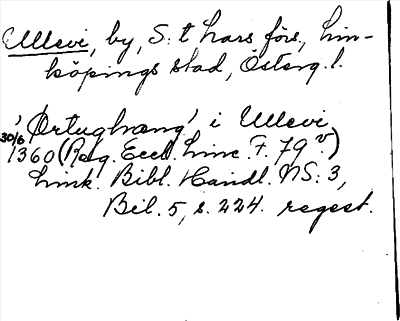 Ullevi, by, S:t Lars förs, Lin-
köpings stad, Österg. l.
'Ørtughræng' i Ullevi
30/6 1360 (Reg. Eccl. Linc. F. 79 v)
Link. Bibl. Handl. NS: 3,
Bil. 5, s. 224. regest.